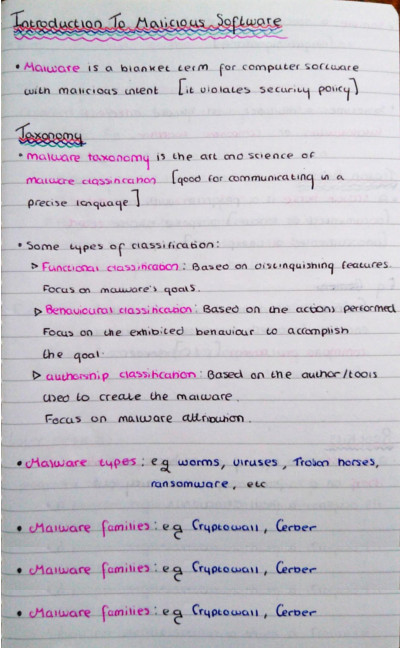 Introduction To Malicious Software
• Malware is a blanket term for computer software
with malicious intent [it violates security policy]
Taxonomy
• malware taxonomy is the art and science of
malware classification [good for communicating in a
precise language]
• Some types of classification:
▷ Functional classification: Based on distinguishing features.
Focus on malware's goals.
▷ Behavioural classification: Based on the actions performed
Focus on the exhibited behaviour to accomplish
the goal.
▷ authorship classification: Based on the author/tools
used to create the malware.
Focus on malware attribution.
• Malware types: eg worms, viruses, Trojan horses,
ransomware, etc
• Malware families: eg Cryptowall, Cerber
• Malware families: eg Cryptowall, Cerber
• Malware families: eg Cryptowall, Cerber